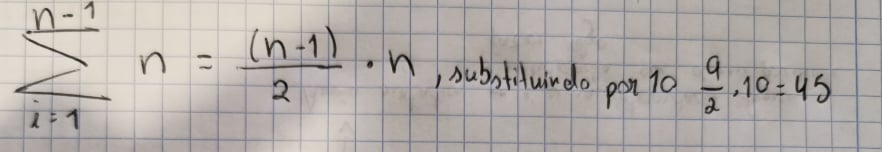 n-1
∑ n = (n-1)/2 · n, substituindo por 10 9/2 . 10 = 45
i=1